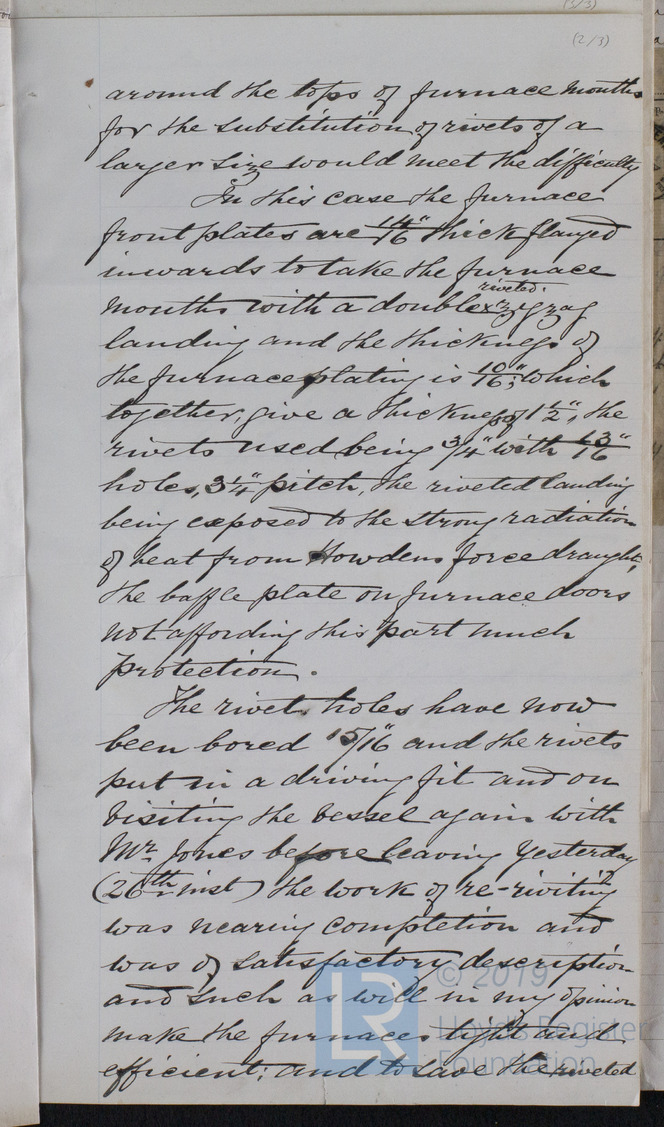 (3/3)
(2/3)
around the tops of furnace mouths
for the substitution of rivets of a
larger size would meet the difficulty
In this case the furnace
front plates are 14/16" thick flanged
inwards to take the furnace
riveted
mouths with a double zigzag
landing and the thickness of
the furnace plating is 10/16"; which
together, give a thickness of 1 1/2", the
rivets used being 3/4" with 13/16"
holes, 3 1/4" pitch, the riveted landing
being exposed to the strong radiation
of heat from Howdens force draught,
the baffle plate on furnace doors
not affording this part much
protection.
The rivet holes have now
been bored 15/16 and the rivets
put in a driving fit and on
visiting the vessel again with
Mr. Jones before leaving yesterday
(26th inst) the work of re-riviting
was nearing completion and
was of satisfactory description
and such as will in my opinion
make the furnaces tight and
efficient; and to save the riveted
© 2019
LR
Lloyd's Register
Foundation